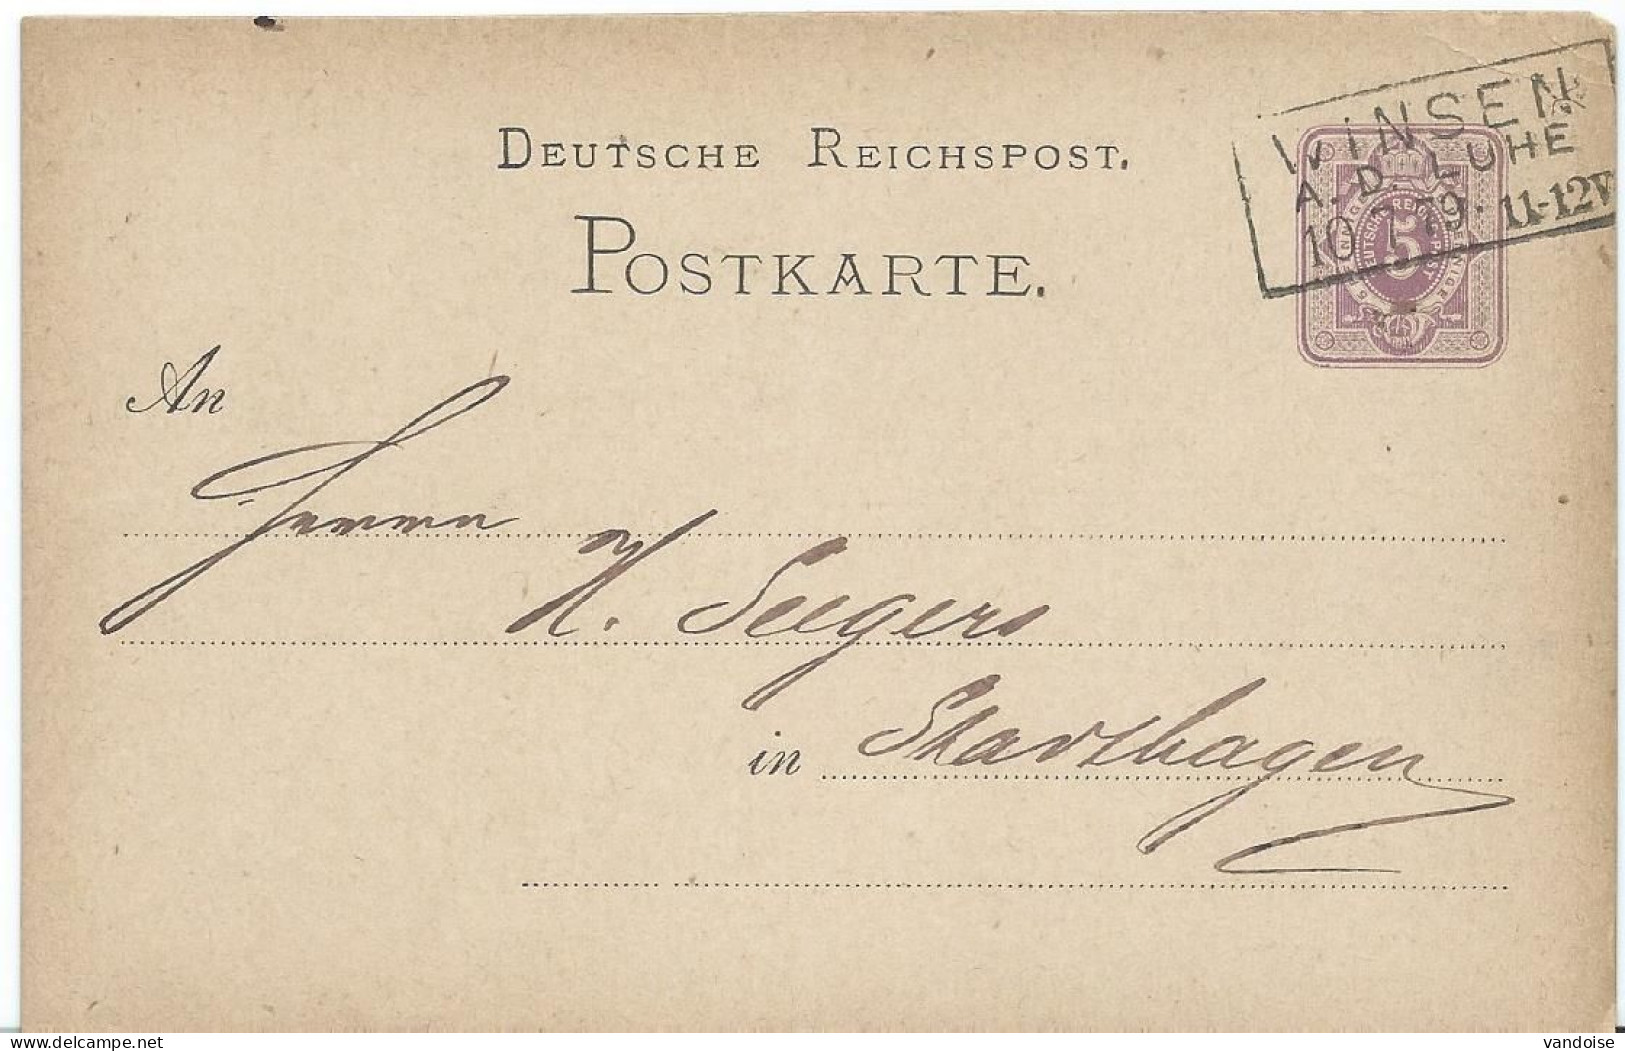 DEUTSCHE REICHSPOST.
POSTKARTE.
WINSEN
A. D. LUHE
10 7 79. 11-12V
5 PFENNIGE 5 PFENNIGE
DEUTSCHE REICHS-POST
5
An
Herrn
H. Seegers
in Stadthagen
www.delcampe.net
vandoise